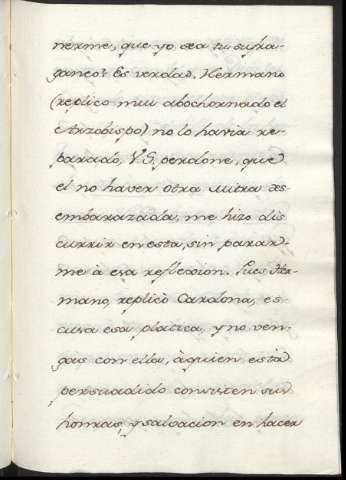 nerme, que yo sea tu sufra-
ganeo? Es verdad. Hermano
(replicò mui abochornado el
Arzobispo) no lo havia re-
parado, V. S. perdone, que
el no haver otra Mitra des
embarazada, me hizo dis
currir en esta, sin parar-
me à esa reflecsion. Pues Her-
mano, replicò Cardona, es-
cusa esa platica, y no ven-
gas con ella, à quien està
persuadido consisten sus
honras, y salvacion en hacer